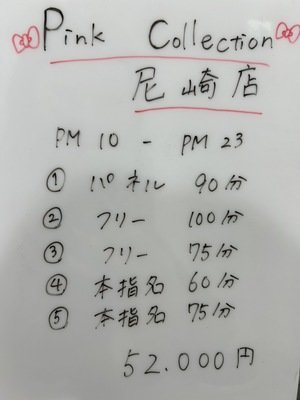 Pink Collection
尼崎店
PM 10 - PM 23
① パネル 90分
② フリー 100分
③ フリー 75分
④ 本指名 60分
⑤ 本指名 75分
52.000円